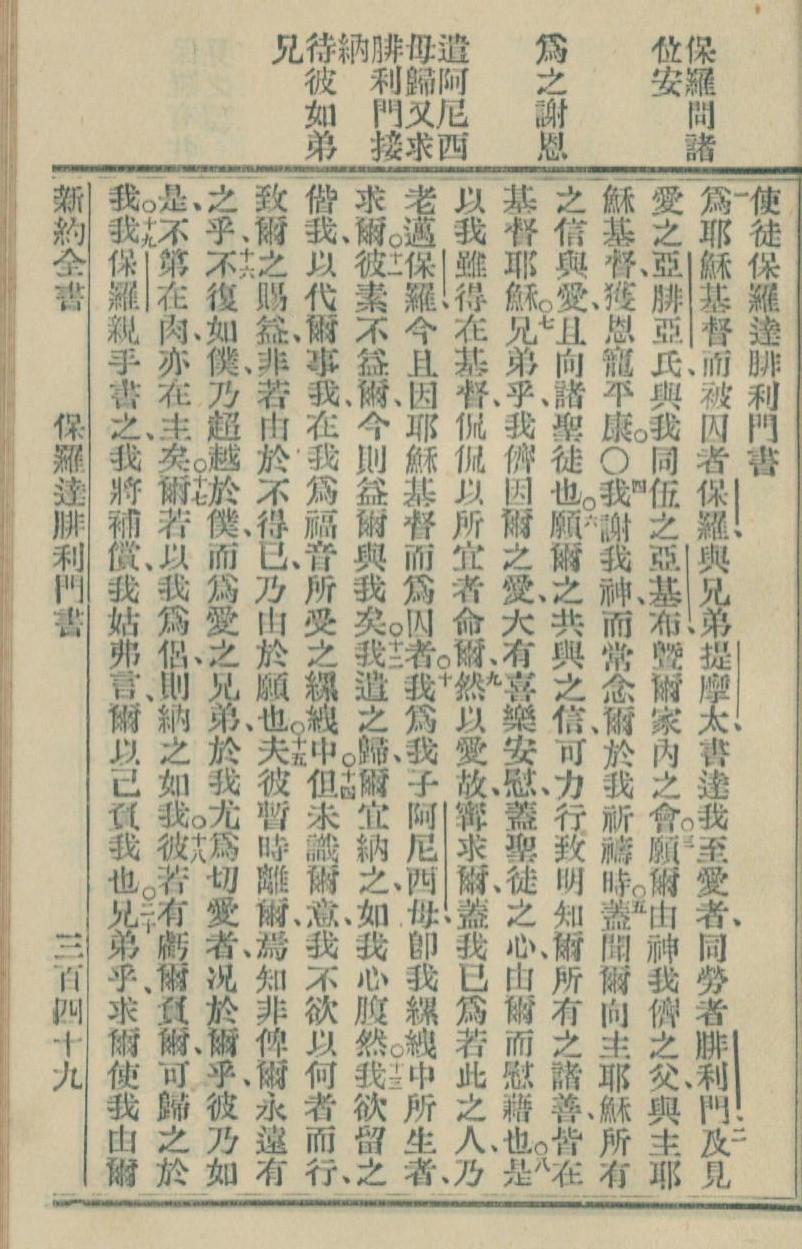 保羅問諸
位安
爲之謝恩
遣阿尼西
母歸又求
腓利門接
納
待彼如弟
兄
使徒保羅達腓利門書
一爲耶穌基督而被囚者保羅、與兄弟提摩太、書達我至愛者、同勞者腓利門、二及見
愛之亞腓亞氏、與我同伍之亞基布、曁爾家內之會。三願爾由神我儕之父、與主耶
穌基督、獲恩寵平康。〇四我謝我神、而常念爾於我祈禱時。五蓋聞爾向主耶穌所有
之信與愛、且向諸聖徒也。六願爾之共與之信、可力行致明知爾所有之諸善、皆在
基督耶穌。七兄弟乎、我儕因爾之愛、大有喜樂安慰、蓋聖徒之心、由爾而慰藉也。八是
以我雖得在基督、侃侃以所宜者命爾、九然以愛故、寗求爾、蓋我已爲若此之人、乃
老邁保羅、今且因耶穌基督而爲囚者。十我爲我子阿尼西母、卽我縲絏中所生者、
求爾。十一彼素不益爾、今則益爾與我矣。十二我遣之歸、爾宜納之、如我心腹然。十三我欲留之
偕我、以代爾事我、在我爲福音所受之縲絏中。十四但未識爾意、我不欲以何者而行、
致爾之賜益、非若由於不得已、乃由於願也。十五夫彼暫時離爾、焉知非俾爾永遠有
之乎、十六不復如僕、乃超越於僕、而爲愛之兄弟、於我尤爲切愛者、况於爾乎、彼乃如
是、不第在肉、亦在主矣。十七爾若以我爲侶、則納之如我。十八彼若有虧爾負爾、可歸之於
我。十九我保羅親手書之、我將補償、我姑弗言、爾以己負我也。二十兄弟乎、求爾使我由爾
新約全書
保羅達腓利門書
三百四十九